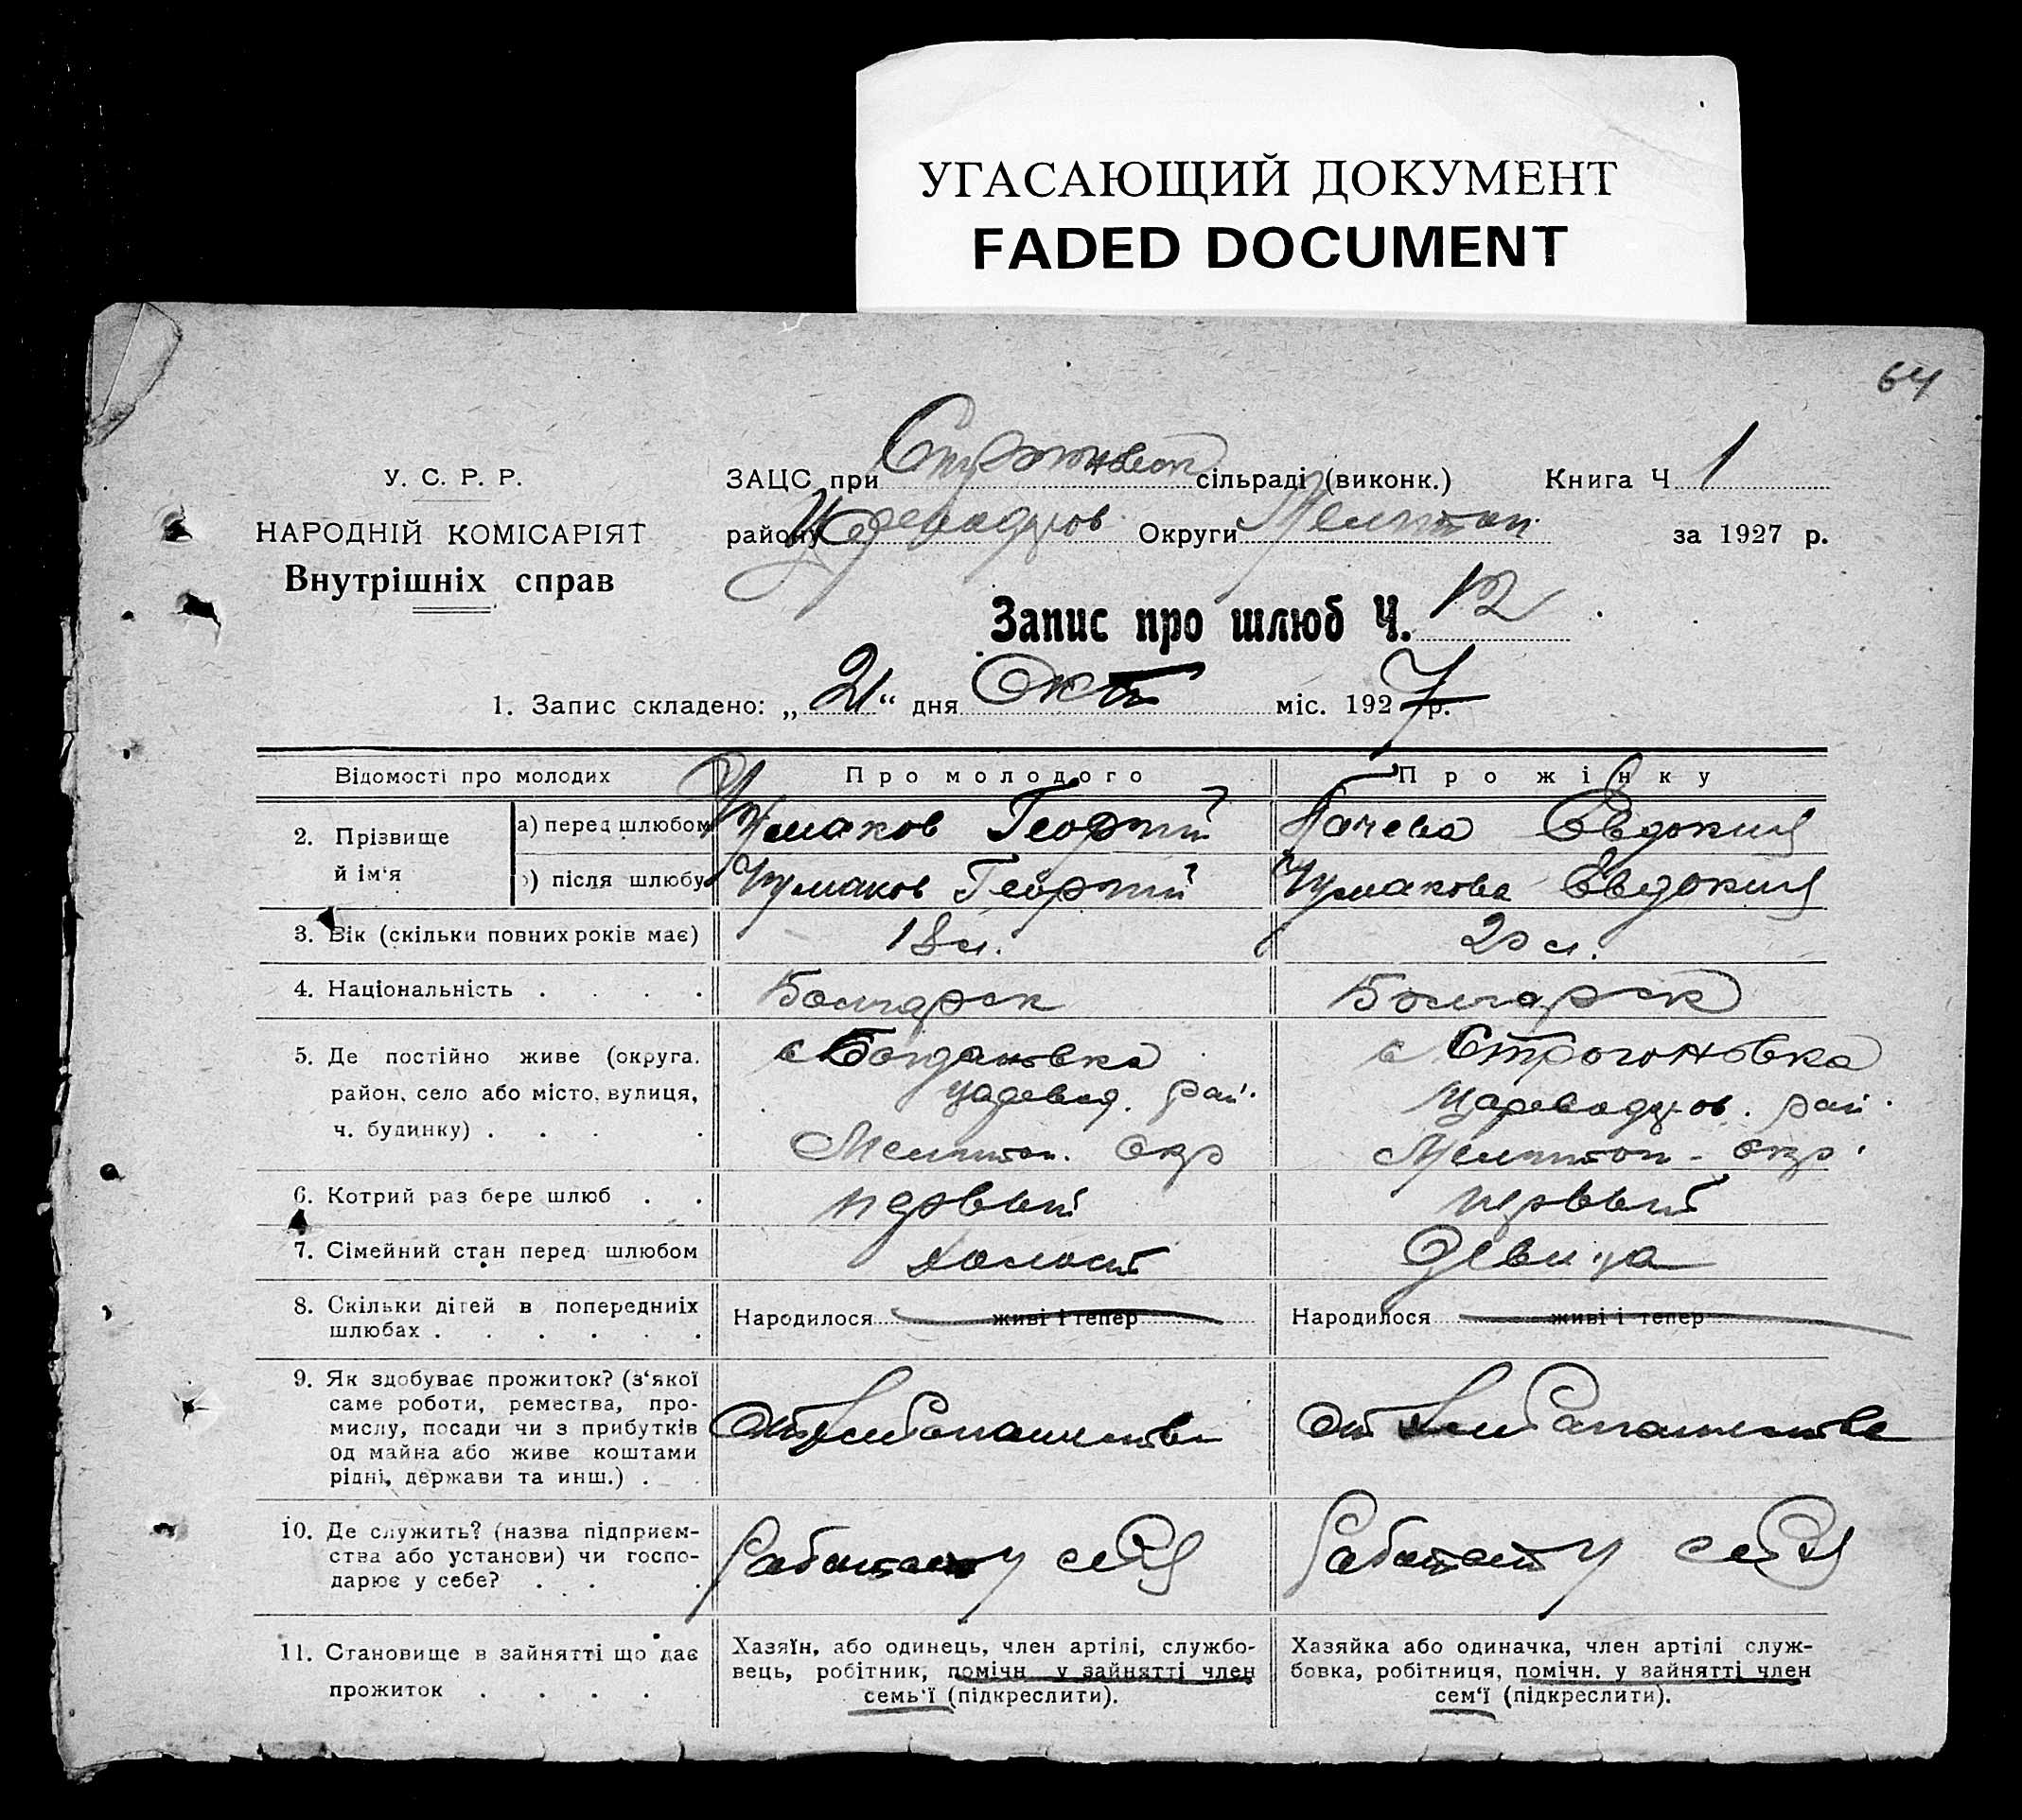 УГАСАЮЩИЙ ДОКУМЕНТ
FADED DOCUMENT
64
У. С. Р. Р.
НАРОДНІЙ КОМІСАРІЯТ
Внутрішніх справ
ЗАЦС при сільраді (виконк.) Книга Ч 1
району Округи Мелитоп. за 1927 р.
Запис про шлюб Ч. 12
1. Запис складено: „21“ дня Окт міс. 1927 р.
Відомості про молодих Про молодого Про жінку
2. Прізвище й ім‘я
а) перед шлюбом Чумаков Георгий Гачева Евдокия
б) після шлюбу Чумаков Георгий Чумакова Евдокия
3. Вік (скільки повних років має) 18 л. 20 л.
4. Національність . . . . Болгарск Болгарск
5. Де постійно живе (округа, с Богдановка с Строгоновка
район, село або місто, вулиця, Царевод. рай. Цареводаров. рай.
ч. будинку) . . . . Мелитоп. Окр Мелитоп. окр.
6. Котрий раз бере шлюб . . первый первый
7. Сімейний стан перед шлюбом холост Девица
8. Скільки дітей в попередниіх Народилося живі і тепер Народилося живі і тепер
шлюбах . . . . . .
9. Як здобуває прожиток? (з‘якої
саме роботи, ремества, про-
мислу, посади чи з прибутків От хлебопашества От хлебопашества
од майна або живе коштами
рідні, держави та инш.) . .
10. Де служить? (назва підприєм-
ства або установи) чи госпо- Работает у себя Работает у себя
дарює у себе? . . .
11. Становище в зайнятті що дає
прожиток . . . .
Хазяїн, або одинець, член артілі, службо-
вець, робітник, помічн. у зайнятті член
семь‘ї (підкреслити).
Хазяйка або одиначка, член артілі служ-
бовка, робітниця, помічн. у зайнятті член
сем‘ї (підкреслити).